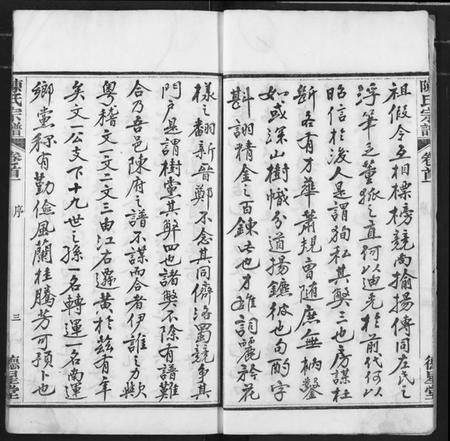 陳氏宗譜
卷首
德星堂
祖假令互相標榜競尚揄揚傳同左氏之
浮筆乏董狐之直何以迪光於前代何以
昭信於後人是謂徇私其獘三也房謀杜
斷各有才華蕭規曹隨庶無枘鑿
如或深山樹幟分道揚鑣彼也句酌字
斟詡精金之百鍊此也才雄詞麗矜花
樣之翻新晉鄭不念其同儕洛蜀競爭其
門戶是謂樹黨其獘四也諸獘不除有譜難
合乃吾邑陳府之譜不謀而合者伊誰之力歟
粤稽文一文二文三由江右遷黄於兹有年
矣文一公支下十九世之孫一名轉運一名尚運
鄉黨稱有勤儉風蘭桂騰芳可預卜也
陳氏宗譜
卷首
序
三
德星堂